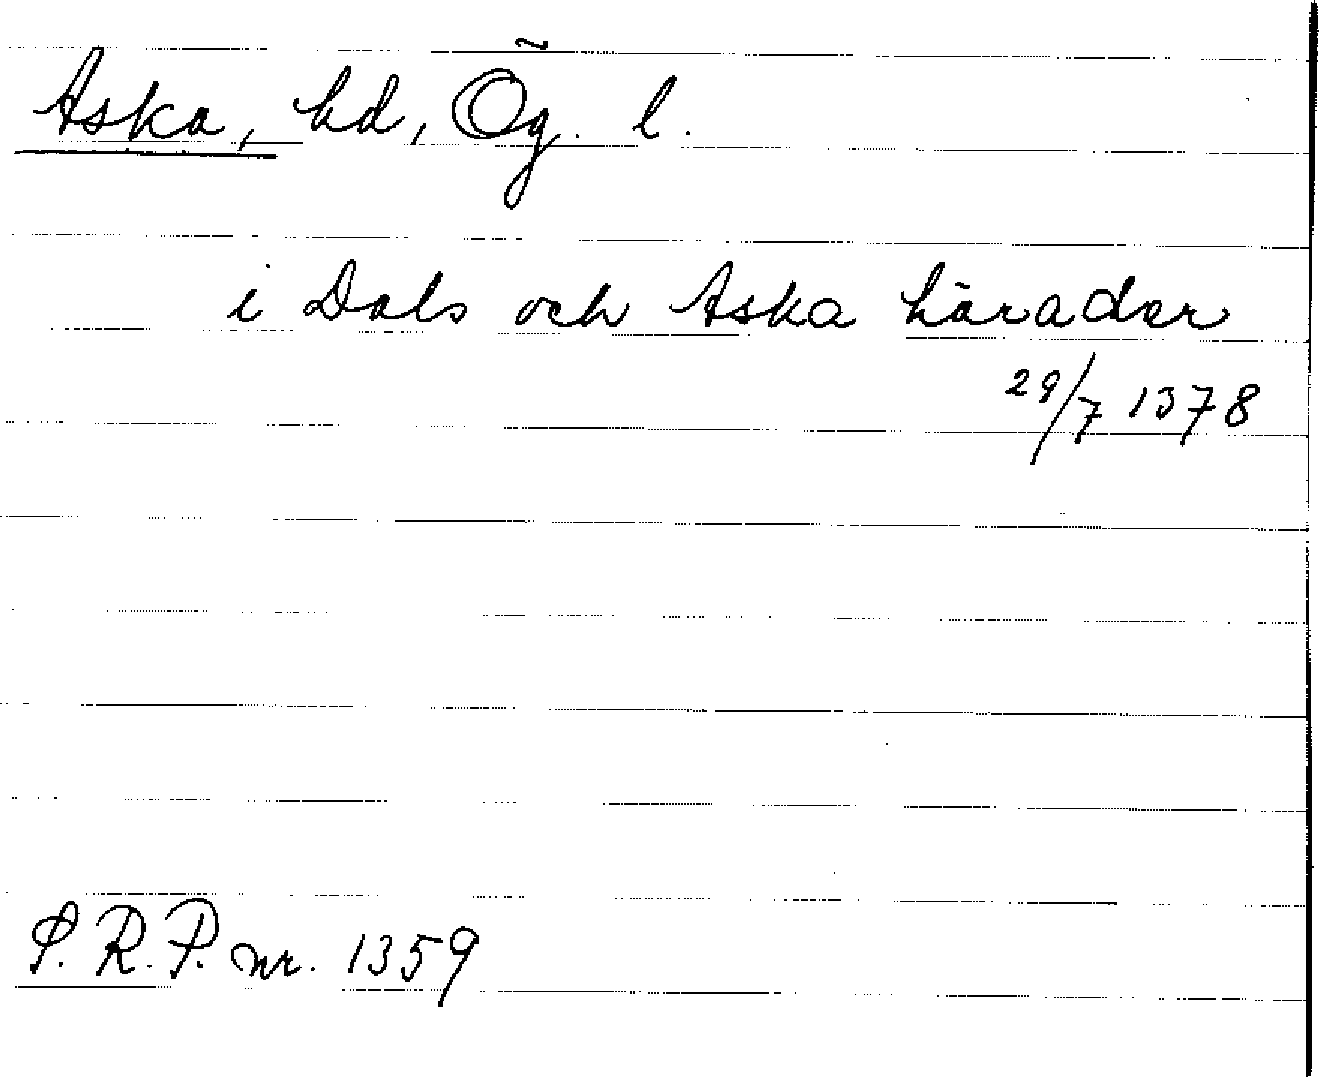 Aska, hd, Ög. l.
i Dals och Aska härader
29/7 1378
S. R. P. nr. 1359